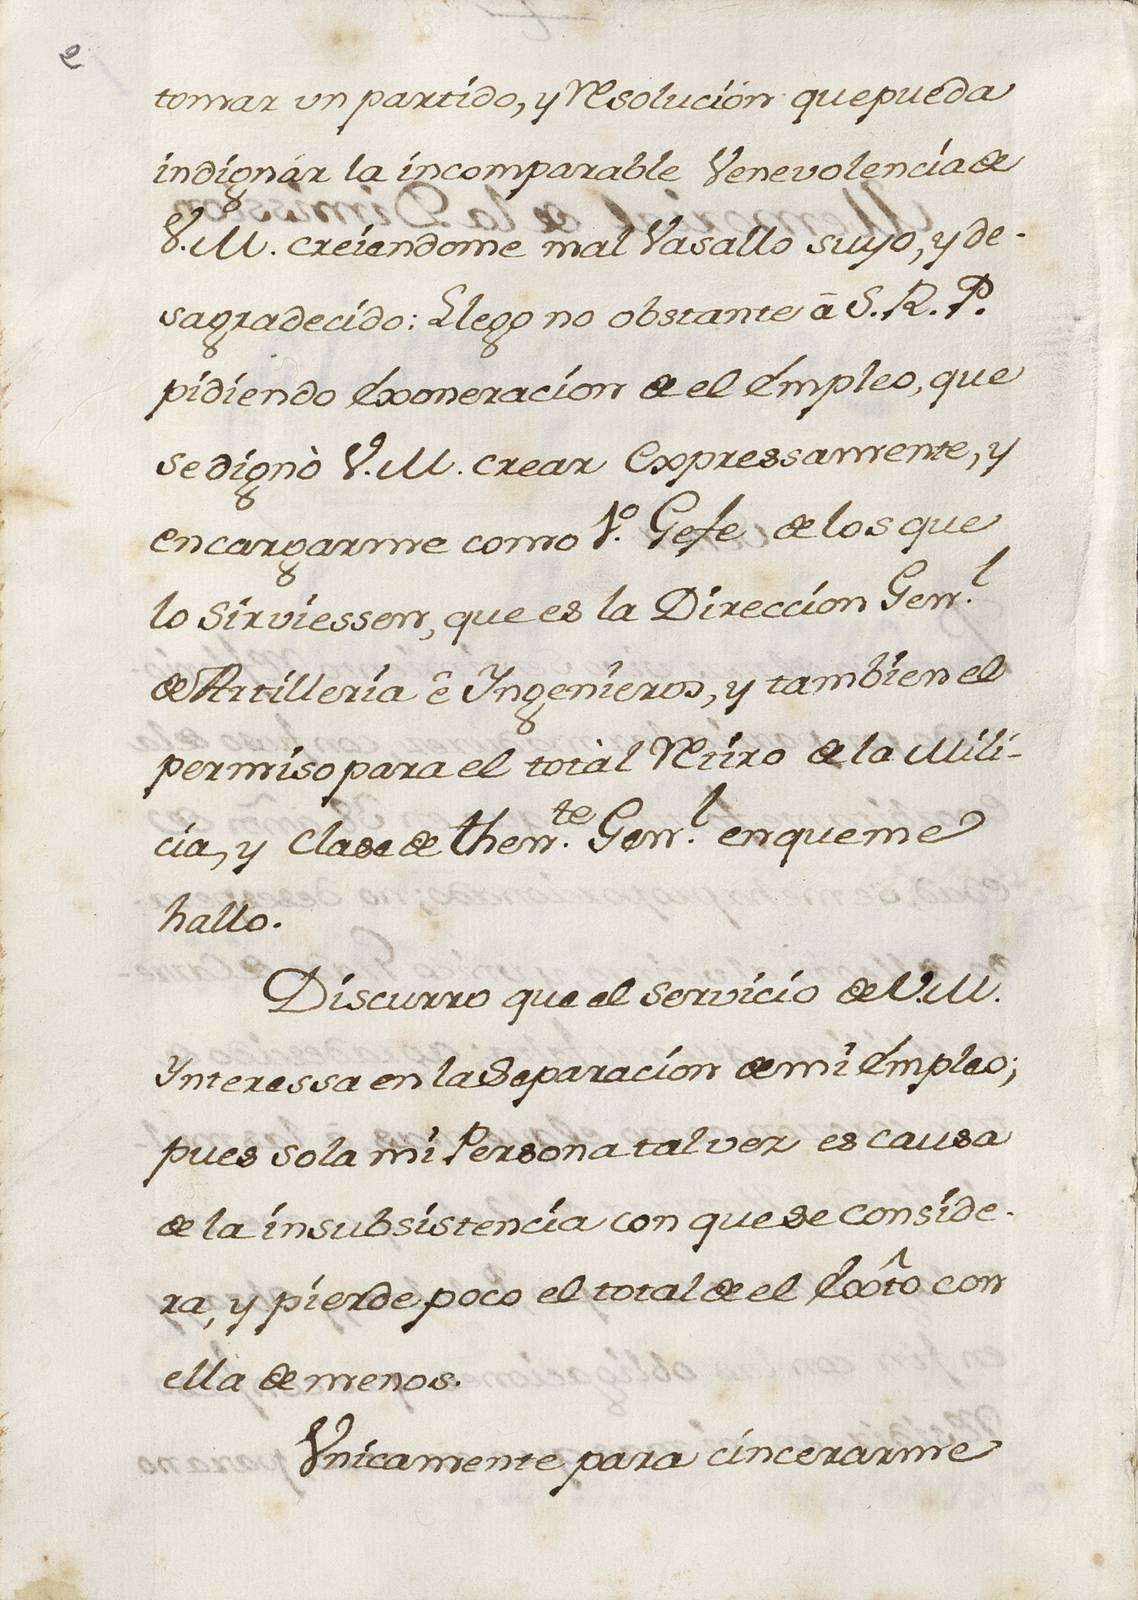 2
tomar vn partido, y Resolución que pueda
indignár la incomparable Venevolencia de
V.M. creiendome mal Vasallo suyo, y de-
sagradecido: Llego no obstante ā S.R.P.
pidiendo Exoneracion de el Empleo, que
se dignò V.M. crear Expressamente, y
encargarme como 1.º Gefe de los que
lo Sirviessen, que es la Direccion Gen.l
de Artilleria ê Yngenieros, y tambien el
permiso para el totàl Retiro de la Mili-
cia, y Clase de Then.te Gen.l en que me
hallo.
Discurro que el Servicio de V.M.
Ynteressa en la Separacion de mi Empleo;
pues sola mi Persona tal vez es causa
de la insubsistencia con que se conside-
ra, y pierde poco el total de el Exto con
ella de menos.
Vnicamente para cincerarme